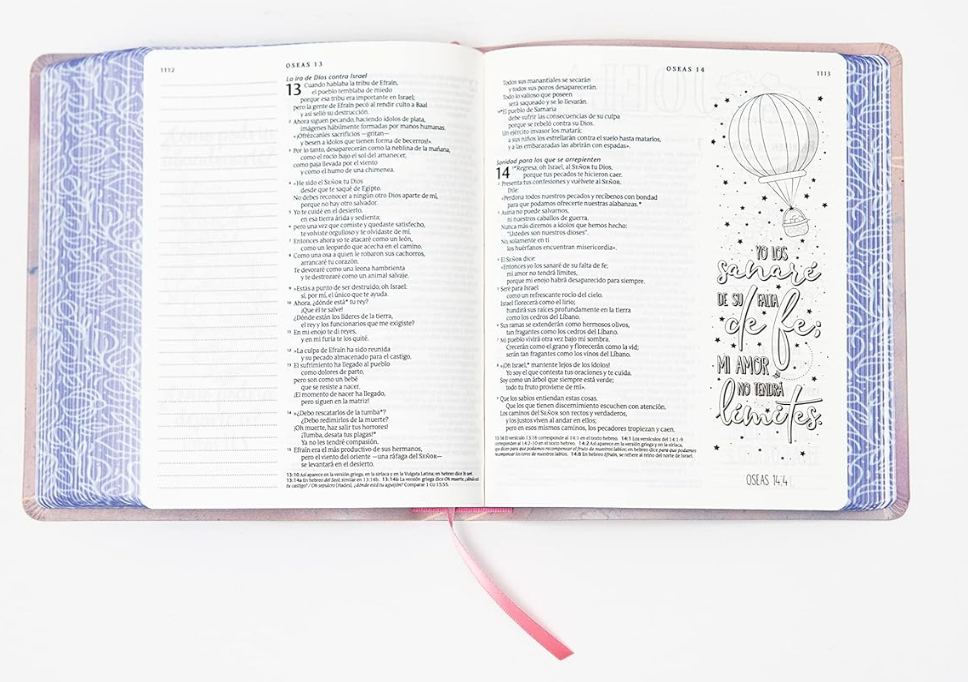 1112
OSEAS 13
La ira de Dios contra Israel
13 Cuando hablaba la tribu de Efraín,
el pueblo temblaba de miedo
porque esa tribu era importante en Israel;
pero la gente de Efraín pecó al rendir culto a Baal
y así selló su destrucción.
2 Ahora siguen pecando, haciendo ídolos de plata,
imágenes hábilmente formadas por manos humanas.
«¡Ofrézcanles sacrificios —gritan—
y besen a ídolos que tienen forma de becerros!».
3 Por lo tanto, desaparecerán como la neblina de la mañana,
como el rocío bajo el sol del amanecer,
como paja llevada por el viento
y como el humo de una chimenea.
4 »He sido el SEÑOR tu Dios
desde que te saqué de Egipto.
No debes reconocer a ningún otro Dios aparte de mí,
porque no hay otro salvador.
5 Yo te cuidé en el desierto,
en esa tierra árida y sedienta;
6 pero una vez que comiste y quedaste satisfecho,
te volviste orgulloso y te olvidaste de mí.
7 Entonces ahora yo te atacaré como un león,
como un leopardo que acecha en el camino.
8 Como una osa a quien le robaron sus cachorros,
arrancaré tu corazón.
Te devoraré como una leona hambrienta
y te destrozaré como un animal salvaje.
9 »Estás a punto de ser destruido, oh Israel;
sí, por mí, el único que te ayuda.
10 Ahora, ¿dónde está* tu rey?
¡Que él te salve!
¿Dónde están los líderes de la tierra,
el rey y los funcionarios que me exigiste?
11 En mi enojo te di reyes,
y en mi furia te los quité.
12 »La culpa de Efraín ha sido reunida
y su pecado almacenado para el castigo.
13 El sufrimiento ha llegado al pueblo
como dolores de parto,
pero son como un bebé
que se resiste a nacer.
¡El momento de nacer ha llegado,
pero siguen en la matriz!
14 »¿Debo rescatarlos de la tumba*?
¿Debo redimirlos de la muerte?
¡Oh muerte, haz salir tus horrores!
¡Tumba, desata tus plagas!*
Ya no les tendré compasión.
15 Efraín era el más productivo de sus hermanos,
pero el viento del oriente —una ráfaga del SEÑOR—
se levantará en el desierto.
13:10 Así aparece en la versión griega, en la siríaca y en la Vulgata Latina; en hebreo dice
13:14a En hebreo del Seol; similar en 13:14b. 13:14b La versión griega dice Oh muerte,
Comparar 1 Co 15:55.
OSEAS 14
1113
Todos sus manantiales se secarán
y todos sus pozos desaparecerán.
Todo lo valioso que poseen
será saqueado y se lo llevarán.
16 *El pueblo de Samaria
debe sufrir las consecuencias de su culpa
porque se rebeló contra su Dios.
Un ejército invasor los matará;
a sus niños los estrellarán contra el suelo hasta matarlos,
y a las embarazadas las abrirán con espadas».
Sanidad para los que se arrepienten
14 1 *Regresa, oh Israel, al SEÑOR tu Dios,
porque tus pecados te hicieron caer.
2 Presenta tus confesiones y vuélvete al SEÑOR.
Dile:
«Perdona todos nuestros pecados y recíbenos con bondad
para que podamos ofrecerte nuestras alabanzas.*
3 Asiria no puede salvarnos,
ni nuestros caballos de guerra.
Nunca más diremos a ídolos que hemos hecho:
“Ustedes son nuestros dioses”.
No, solamente en ti
los huérfanos encuentran misericordia».
4 El SEÑOR dice:
«Entonces yo los sanaré de su falta de fe;
mi amor no tendrá límites,
porque mi enojo habrá desaparecido para siempre.
5 Seré para Israel
como un refrescante rocío del cielo.
Israel florecerá como el lirio;
hundirá sus raíces profundamente en la tierra
como los cedros del Líbano.
6 Sus ramas se extenderán como hermosos olivos,
tan fragantes como los cedros del Líbano.
7 Mi pueblo vivirá otra vez bajo mi sombra.
Crecerán como el grano y florecerán como la vid;
serán tan fragantes como los vinos del Líbano.
8 »¡Oh Israel,* mantente lejos de los ídolos!
Yo soy el que contesta tus oraciones y te cuida.
Soy como un árbol que siempre está verde;
todo tu fruto proviene de mí».
9 Que los sabios entiendan estas cosas.
Que los que tienen discernimiento escuchen con atención.
Los caminos del SEÑOR son rectos y verdaderos,
y los justos viven al andar en ellos;
pero en esos mismos caminos, los pecadores tropiezan y caen.
13:16 El versículo 13:16 corresponde al 14:1 en el texto hebreo. 14:1 Los versículos del 14:1-9
corresponden al 14:2-10 en el texto hebreo. 14:2 Así aparece en la versión griega y en la siríaca,
14:8 En hebreo Efraín, se refiere al reino del norte de Israel.
YO LOS
sanaré
DE SU FALTA
de fe;
MI AMOR
NO TENDRÁ
límites.
OSEAS 14:4